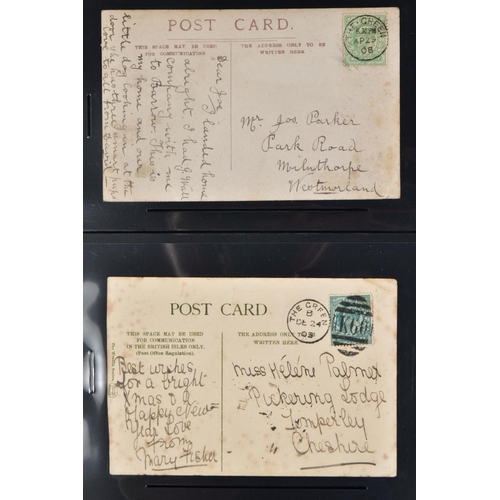 POST CARD.
THIS SPACE MAY BE USED
FOR COMMUNICATION
THE ADDRESS ONLY TO BE
WRITTEN HERE.
THE GREEN
AP 29
08
Dear Joe, I landed home
alright. I had J. Wall
company with me
to Barrow. This is
my home and our
little dog looking in at the
love to all from
Mr Jos Parker
Park Road
Milnthorpe
Westmorland
POST CARD.
THIS SPACE MAY BE USED
FOR COMMUNICATION
IN THE BRITISH ISLES ONLY.
(Post Office Regulation).
THE ADDRESS ONLY
WRITTEN HERE.
THE GREEN
B
DE 24
K60
Best wishes
for a bright
Xmas & a
Happy New
Year Love
from
Mary Fisher
Miss Hélène Palmer
Pickering Lodge
Timperley
Cheshire